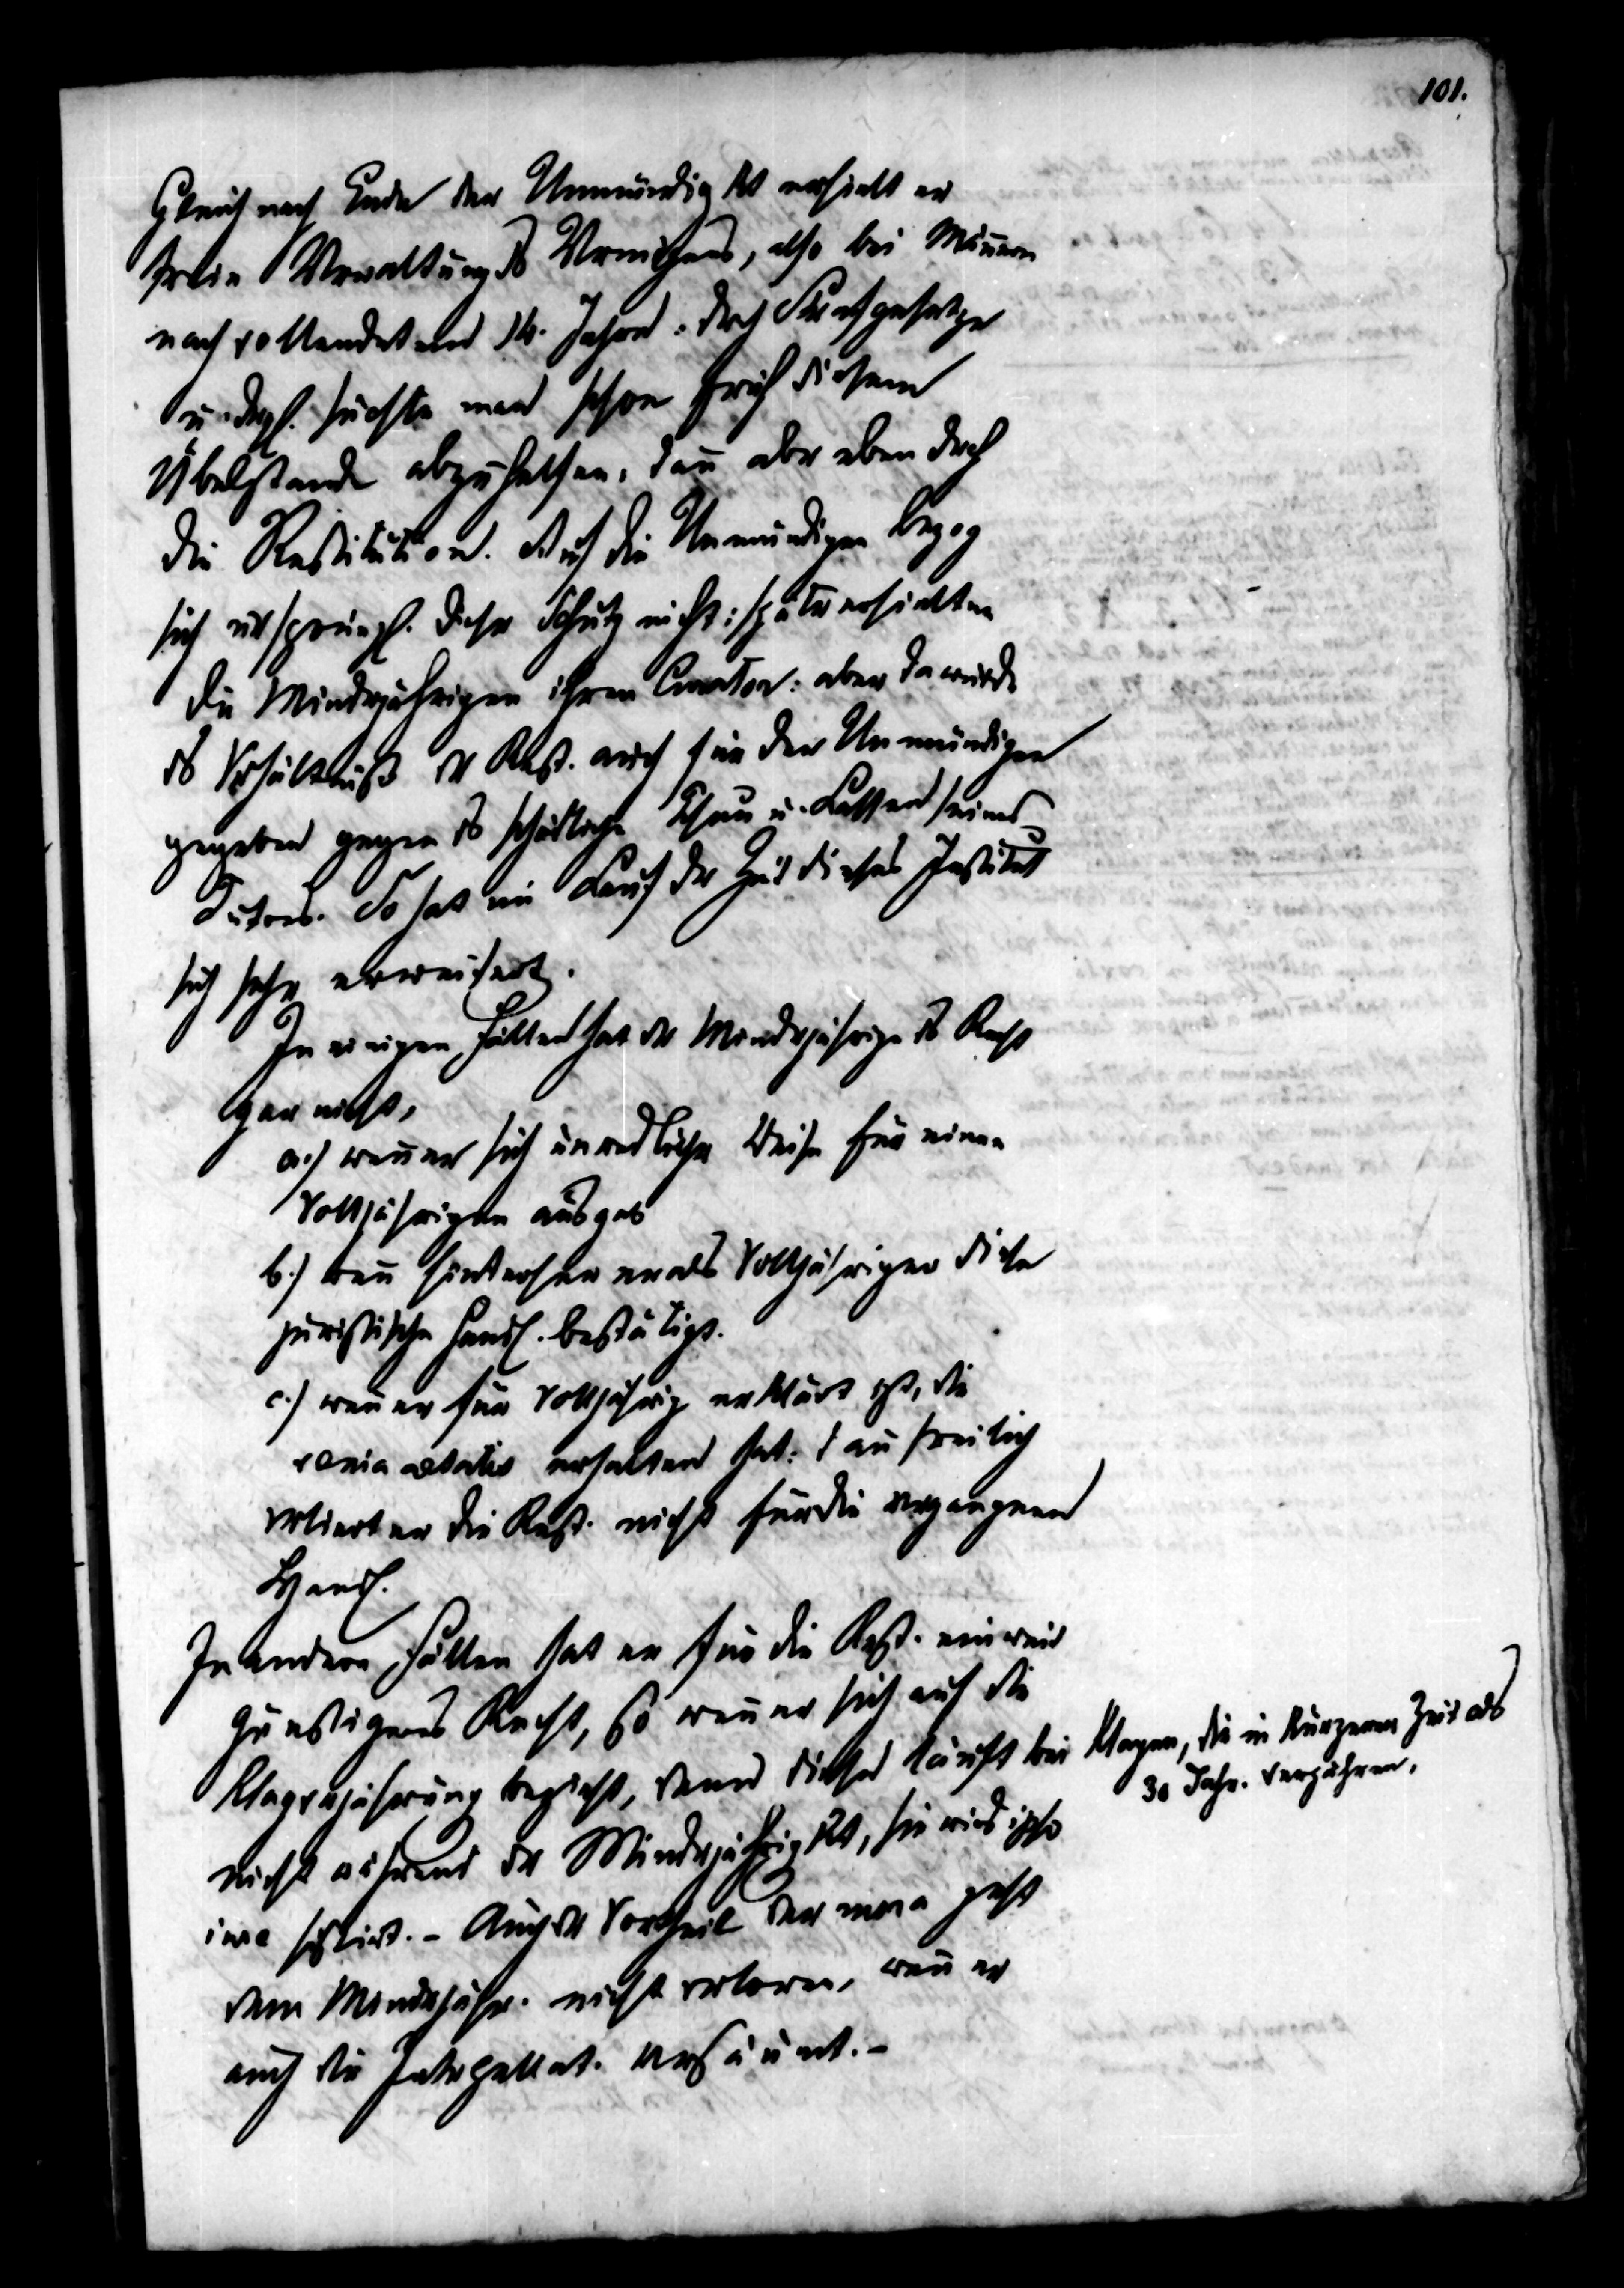 101.
Gleich nach Ende der Unmündigkt erhielt er
freie Verwaltung ds Vermögens, also bei Männern
nach vollendetem 14. Jahre. Drch Strafgesetze
u. dergl. suchte man schon früh diesem
Übelstande abzuhelfen, dann aber eben drch
die Restitution. Auf die Unmündigen bezog
sich ursprüngl. dieser Schutz nicht; später erhielten
die Minderjährigen ihren Curator: aber da wurde
ds Verhältniß der Rest. auch für den Unmündigen
gegeben gegen ds schädliche Thun u. Lassen seines
Tutors. So hat im Lauf der Zeit dieses Institut
sich sehr erweitert.
In einigen Fällen hat der Minderjährige ds Recht
gar nicht,
a.) wenn er sich unredlicher Weise für einen
Volljährigen ausgab
b.) wenn hinterher er als Volljähriger diese
juristische Handl. bestätigt.
c.) wenn er für volljährig erklärt ist, die
venia aetatis erhalten hat: dann freilich
verliert er die Rest. nicht für die vergangenen
Handl.
In andern Fällen hat er für die Rest. ein weit
günstigeres Recht, so wenn er sich auf die
Klagverjährung bezieht, denn diese läuft bei Klagen, die in kürzerer Zeit als
30 Jahr. verjähren,
nicht während der Minderjährigkt, sie wird ipso
iure sistirt. - Auch der Vortheil der mora geht
dem Minderjähr. nicht verloren, wenn er
auch die Interpellat. versäumt. -